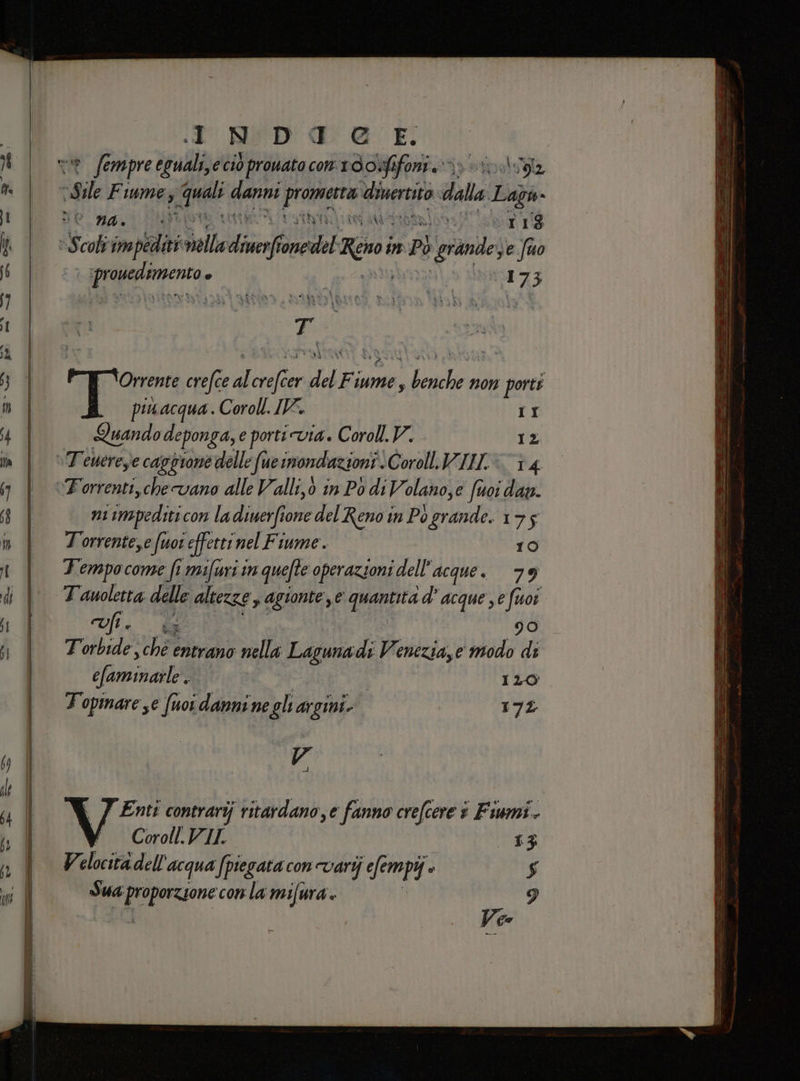 INDICE.
sempre eguali, e ciò prouato con 100. sifoni. 92
Sile Fiume, quali danni prometta diuertito dalla Lagu-
na. 118
Scoli impediti nella diuersione del Reno in Pò grande, e suo
prouedimento. 173
T
TOrrente cresce al crescer del Fiume, benche non porti
più acqua. Coroll. IV. 11
Quando deponga, e porti via. Coroll. V. 12
Teuere, e caggione delle sue inondazioni. Coroll. VIII. 14
Torrenti, che vano alle Valli, ò in Pò di Volano, e suoi dan-
ni impediti con la diuersione del Reno in Pò grande. 175
Torrente, e suoi effetti nel Fiume. 10
Tempo come si misuri in queste operazioni dell'acque. 79
Tauoletta delle altezze, agionte, e quantità d'acque, e suoi
vsi. 90
Torbide, che entrano nella Laguna di Venezia, e modo di
esaminarle. 120
Topinare, e suoi danni negli argini. 172
V
VEnti contrarij ritardano, e fanno crescere i Fiumi.
Coroll. VII. 13
Velocità dell'acqua spiegata con varij esempij. 5
Sua proporzione con la misura. 9
Ve-